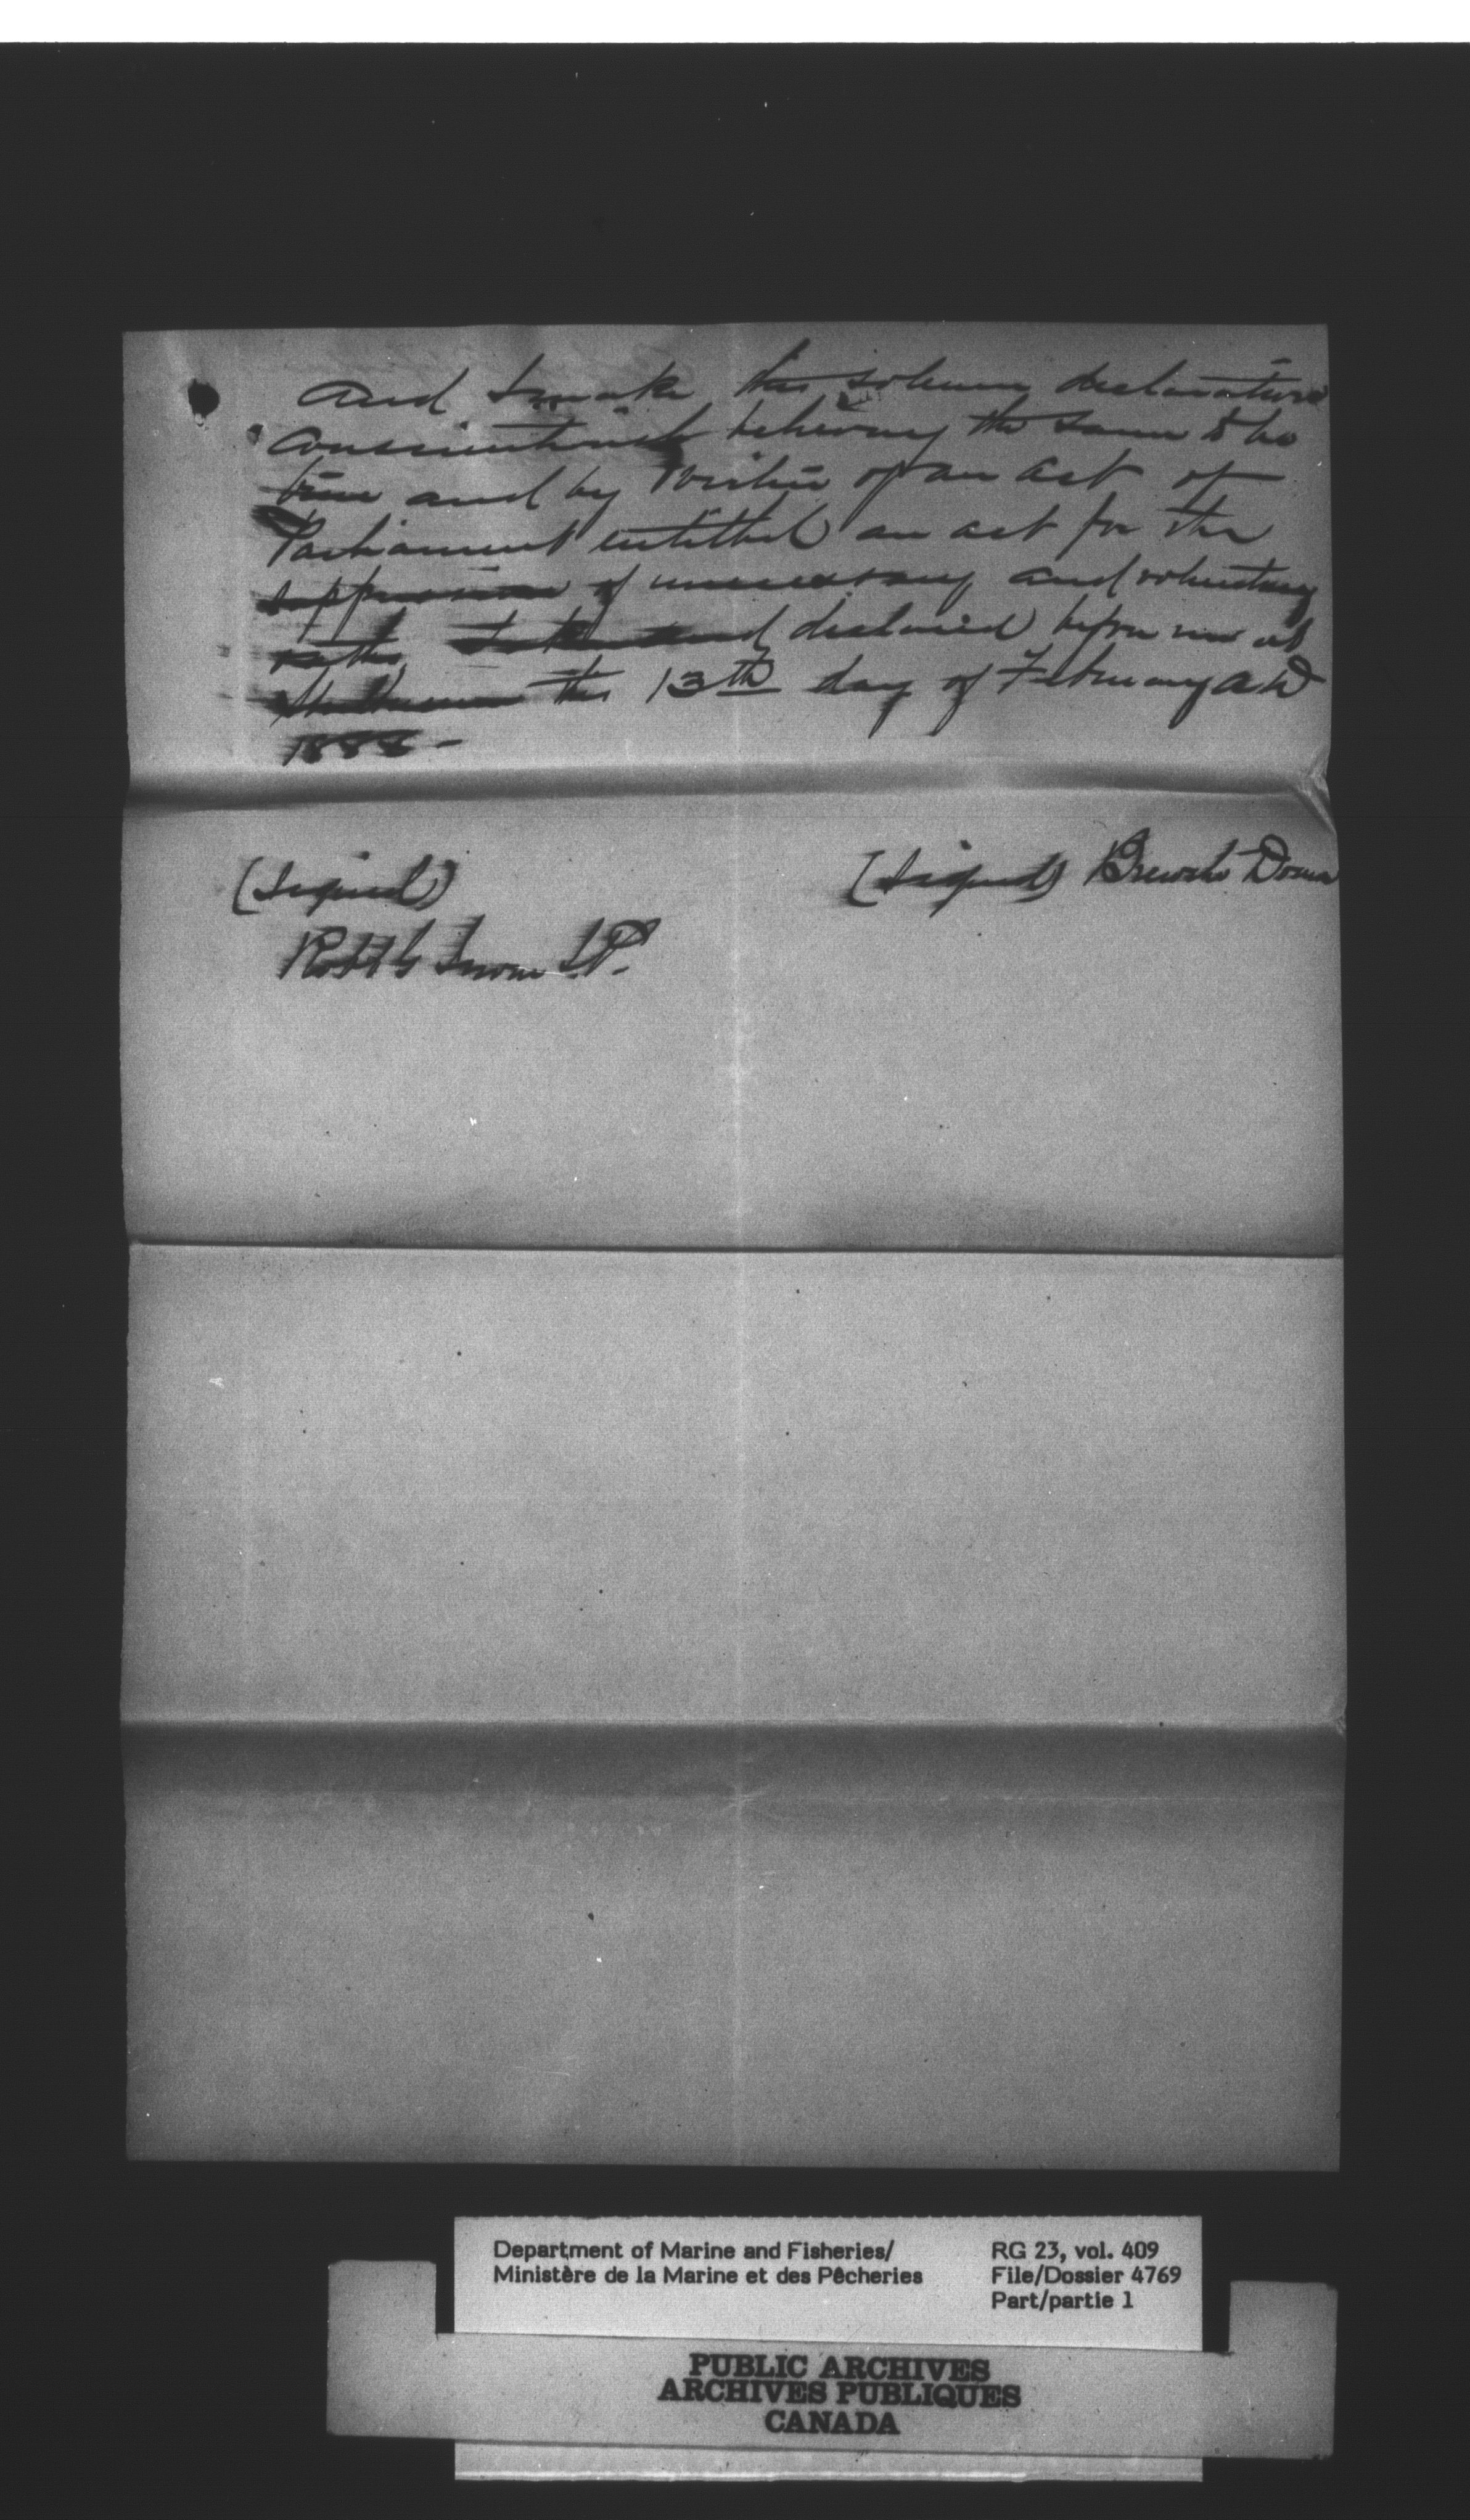 And I make this solemn declaration
conscientiously believing the same to be
true and by virtue of an act of
Parliament entitled an act for the
suppression of unnecessary and voluntary
oaths. Taken and declared before me at
Shelburne this 13th day of February A D
1888 -
(Signed)
(Signed) Doane
Robt G Irwin J.P.
Department of Marine and Fisheries/
Ministère de la Marine et des Pêcheries
RG 23, vol. 409
File/Dossier 4769
Part/partie 1
PUBLIC ARCHIVES
ARCHIVES PUBLIQUES
CANADA